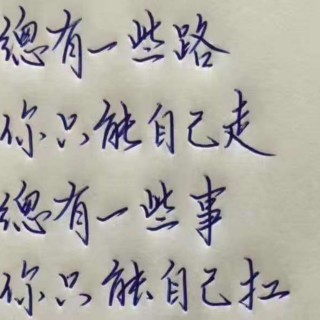 總有一些路
你只能自己走
總有一些事
你只能自己扛